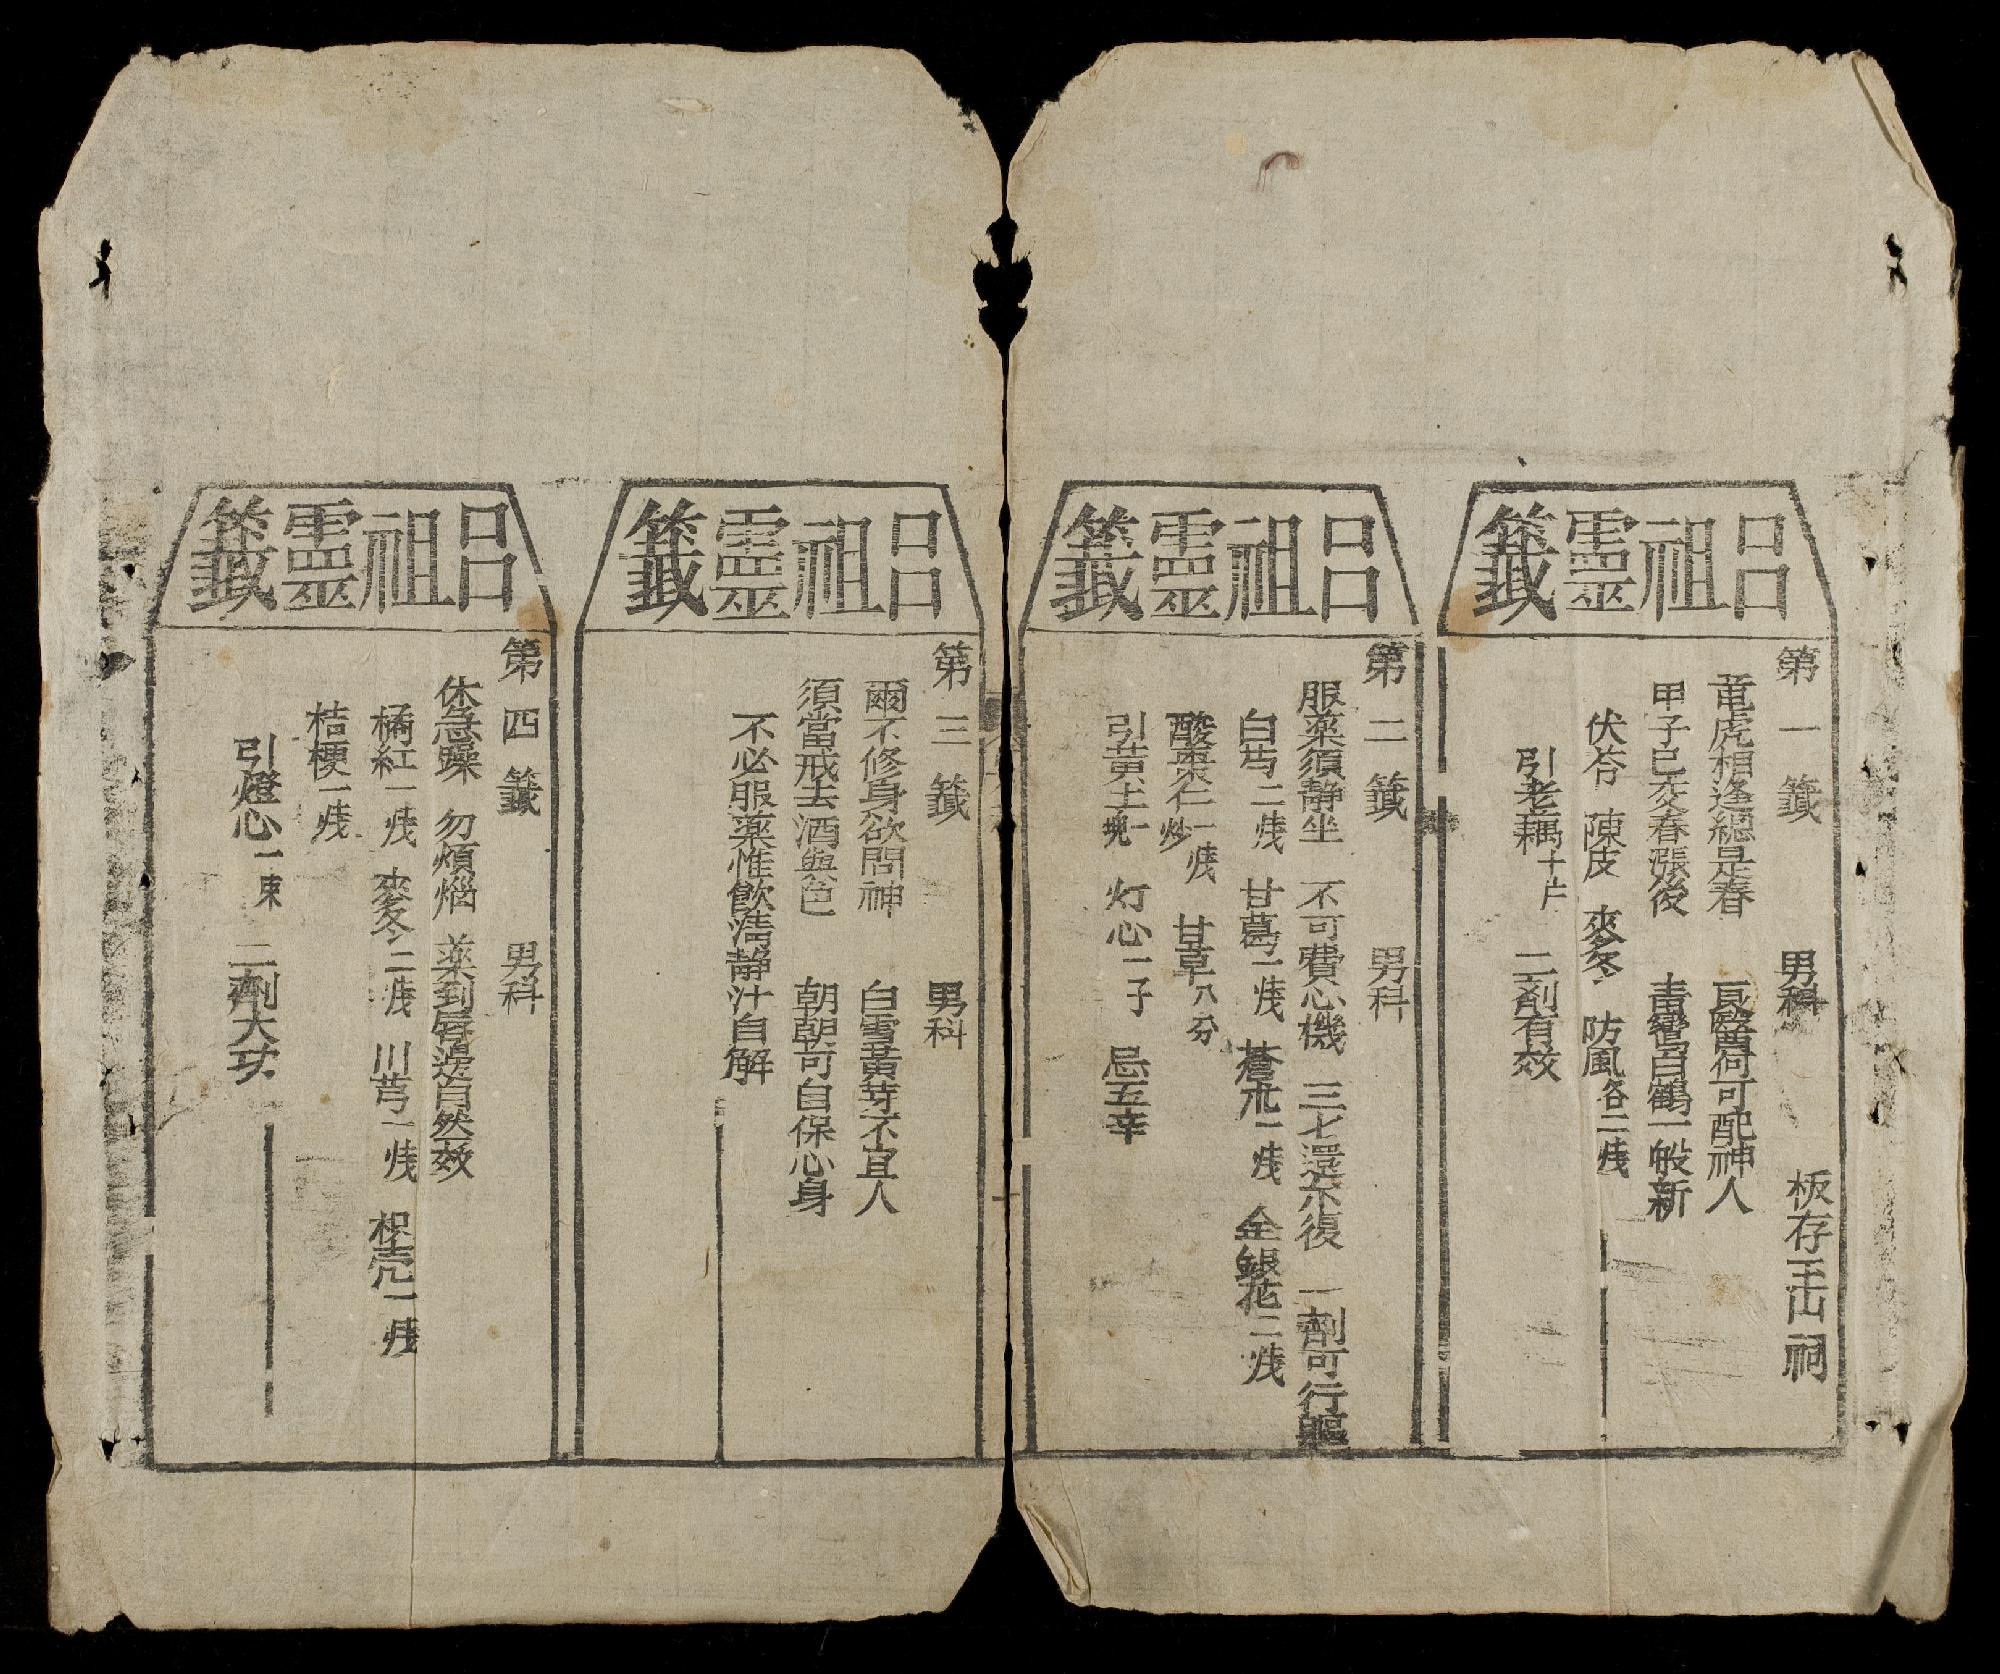 呂祖靈籤
第一籤 男科 板存玉山祠
竜虎相逢總是春 良醫何可配神人
甲子已交春漲後 青鸞白鶴一般新
伏苓 陳皮 麥冬 防風各二戋
引老藕十片 二剤有效
呂祖靈籤
第二籤 男科
服薬須静坐 不可費心機 三七還不復 一劑可行軀
白芍二戋 甘葛一戋 蒼朮一戋 金銀花二戋
酸棗仁一戋炒 甘草八分
引黃土一塊 灯心一子 忌五辛
呂祖靈籤
第三籤 男科
爾不修身欲問神 白雪黃芽不宜人
須當戒去酒與色 朝朝可自保心身
不必服薬惟飲清静汁自解
呂祖靈籤
第四籤 男科
休急躁 勿煩惱 薬到唇邊自然效
橘紅一戋 麥冬二戋 川芎一戋 枳壳一戋
桔梗一戋
引燈心一束 二劑大功